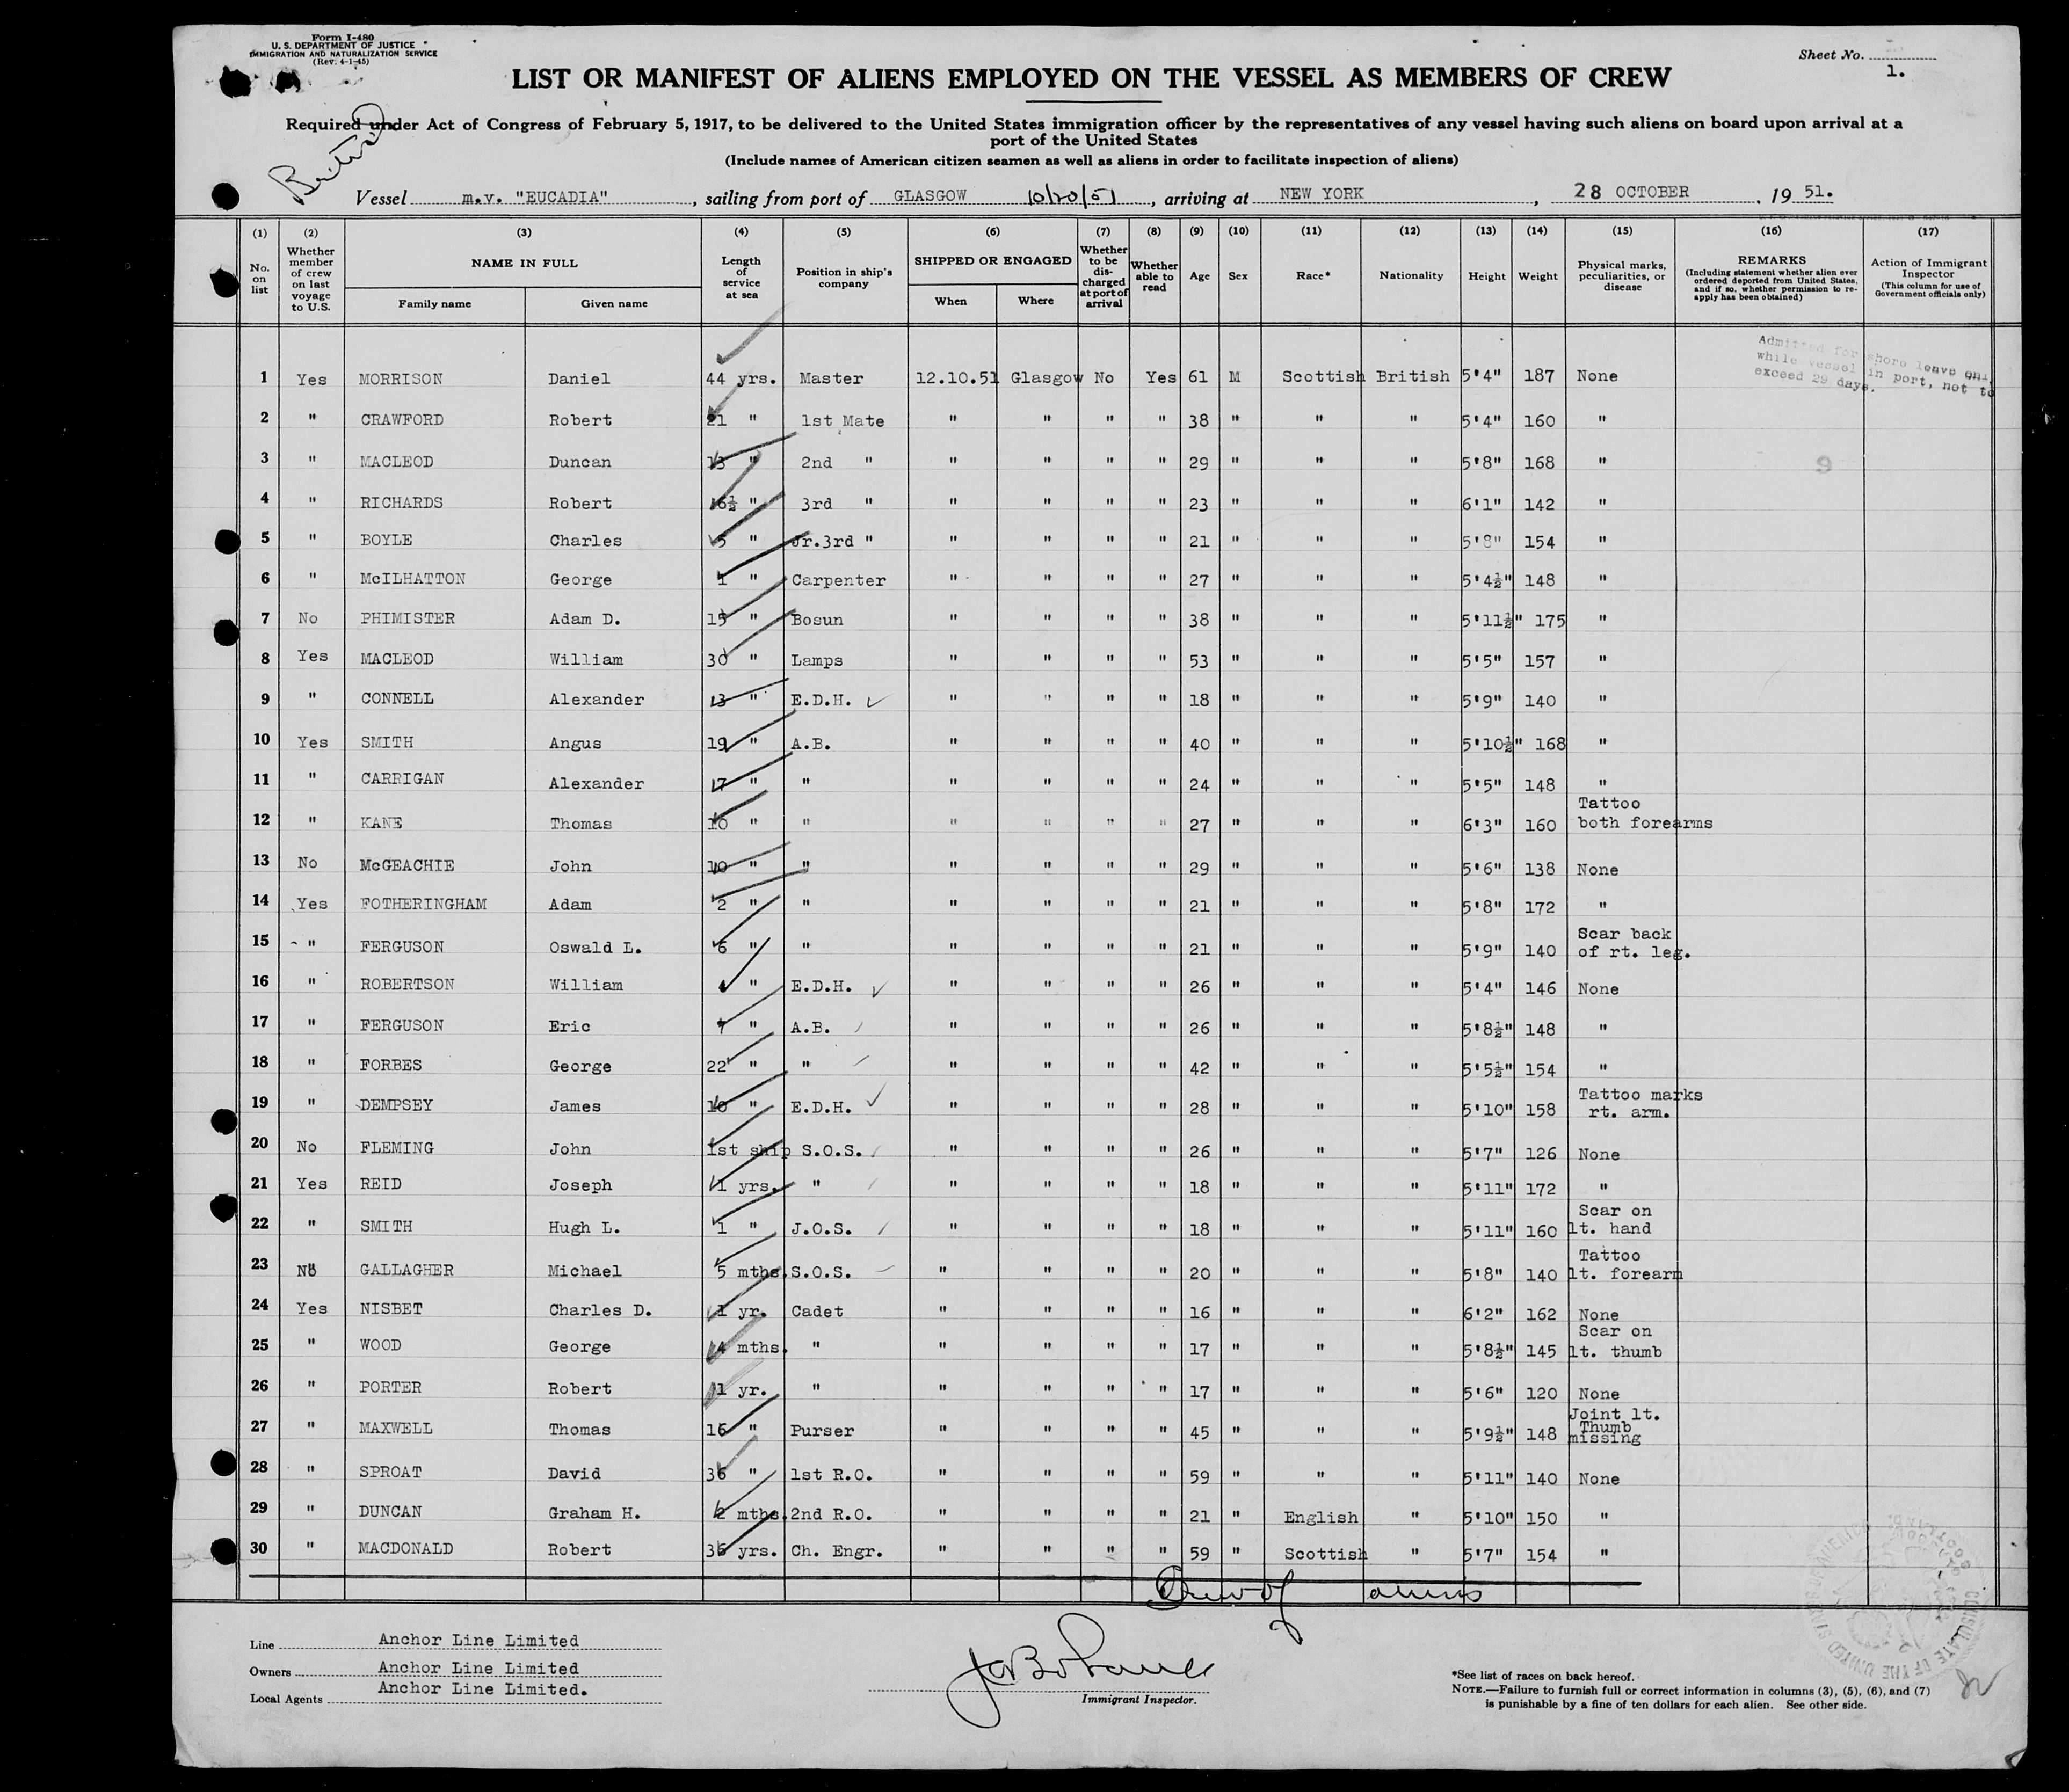 Form I-480
U. S. DEPARTMENT OF JUSTICE
IMMIGRATION AND NATURALIZATION SERVICE
(Rev. 4-1-45)
Sheet No. 1.
LIST OR MANIFEST OF ALIENS EMPLOYED ON THE VESSEL AS MEMBERS OF CREW
Required under Act of Congress of February 5, 1917, to be delivered to the United States immigration officer by the representatives of any vessel having such aliens on board upon arrival at a
port of the United States
(Include names of American citizen seamen as well as aliens in order to facilitate inspection of aliens)
British
Vessel m.v. "EUCADIA", sailing from port of GLASGOW 10/20/51, arriving at NEW YORK, 28 OCTOBER, 19 51.
(1) No. on list (2) Whether member of crew on last voyage to U.S. (3) NAME IN FULL Family name Given name (4) Length of service at sea (5) Position in ship's company (6) SHIPPED OR ENGAGED When Where (7) Whether to be discharged at port of arrival (8) Whether able to read (9) Age (10) Sex (11) Race* (12) Nationality (13) Height (14) Weight (15) Physical marks, peculiarities, or disease (16) REMARKS (Including statement whether alien ever ordered deported from United States, and if so, whether permission to reapply has been obtained) (17) Action of Immigrant Inspector (This column for use of Government officials only)
Admitted for shore leave only
while vessel in port, not to
exceed 29 days.
1 Yes MORRISON Daniel 44 yrs. Master 12.10.51 Glasgow No Yes 61 M Scottish British 5'4" 187 None
2 " CRAWFORD Robert 21 " 1st Mate " " " " 38 " " " 5'4" 160 "
3 " MACLEOD Duncan 13 " 2nd " " " " " 29 " " " 5'8" 168 "
9
4 " RICHARDS Robert 6½ " 3rd " " " " " 23 " " " 6'1" 142 "
5 " BOYLE Charles 5 " Jr.3rd " " " " " 21 " " " 5'8" 154 "
6 " McILHATTON George 1 " Carpenter " " " " 27 " " " 5'4½" 148 "
7 No PHIMISTER Adam D. 15 " Bosun " " " " 38 " " " 5'11½" 175 "
8 Yes MACLEOD William 30 " Lamps " " " " 53 " " " 5'5" 157 "
9 " CONNELL Alexander " E.D.H. " " " " 18 " " " 5'9" 140 "
10 Yes SMITH Angus 19 " A.B. " " " " 40 " " " 5'10½" 168 "
11 " CARRIGAN Alexander " " " " " " 24 " " " 5'5" 148 "
12 " KANE Thomas 10 " " " " " " 27 " " " 6'3" 160 Tattoo both forearms
13 No McGEACHIE John 10 " " " " " " 29 " " " 5'6" 138 None
14 Yes FOTHERINGHAM Adam 2 " " " " " " 21 " " " 5'8" 172 "
15 " FERGUSON Oswald L. 6 " " " " " " 21 " " " 5'9" 140 Scar back of rt. leg.
16 " ROBERTSON William " E.D.H. " " " " 26 " " " 5'4" 146 None
17 " FERGUSON Eric 7 " A.B. " " " " 26 " " " 5'8½" 148 "
18 " FORBES George 22 " " " " " " 42 " " " 5'5½" 154 "
19 " DEMPSEY James 10 " E.D.H. " " " " 28 " " " 5'10" 158 Tattoo marks rt. arm.
20 No FLEMING John 1st ship S.O.S. " " " " 26 " " " 5'7" 126 None
21 Yes REID Joseph 1 yrs. " " " " " 18 " " " 5'11" 172 "
22 " SMITH Hugh L. 1 " J.O.S. " " " " 18 " " " 5'11" 160 Scar on lt. hand
23 No GALLAGHER Michael 5 mths. S.O.S. " " " " 20 " " " 5'8" 140 Tattoo lt. forearm
24 Yes NISBET Charles D. 1 yr. Cadet " " " " 16 " " " 6'2" 162 None
25 " WOOD George 4 mths. " " " " " 17 " " " 5'8½" 145 Scar on lt. thumb
26 " PORTER Robert 1 yr. " " " " " 17 " " " 5'6" 120 None
27 " MAXWELL Thomas 16 " Purser " " " " 45 " " " 5'9½" 148 Joint lt. Thumb missing
28 " SPROAT David 36 " 1st R.O. " " " " 59 " " " 5'11" 140 None
29 " DUNCAN Graham H. 2 mths. 2nd R.O. " " " " 21 " English " 5'10" 150 "
30 " MACDONALD Robert 36 yrs. Ch. Engr. " " " " 59 " Scottish " 5'7" 154 "
Crew of aliens
Line Anchor Line Limited
Owners Anchor Line Limited
Local Agents Anchor Line Limited.
Immigrant Inspector.
*See list of races on back hereof.
NOTE.—Failure to furnish full or correct information in columns (3), (5), (6), and (7)
is punishable by a fine of ten dollars for each alien. See other side.